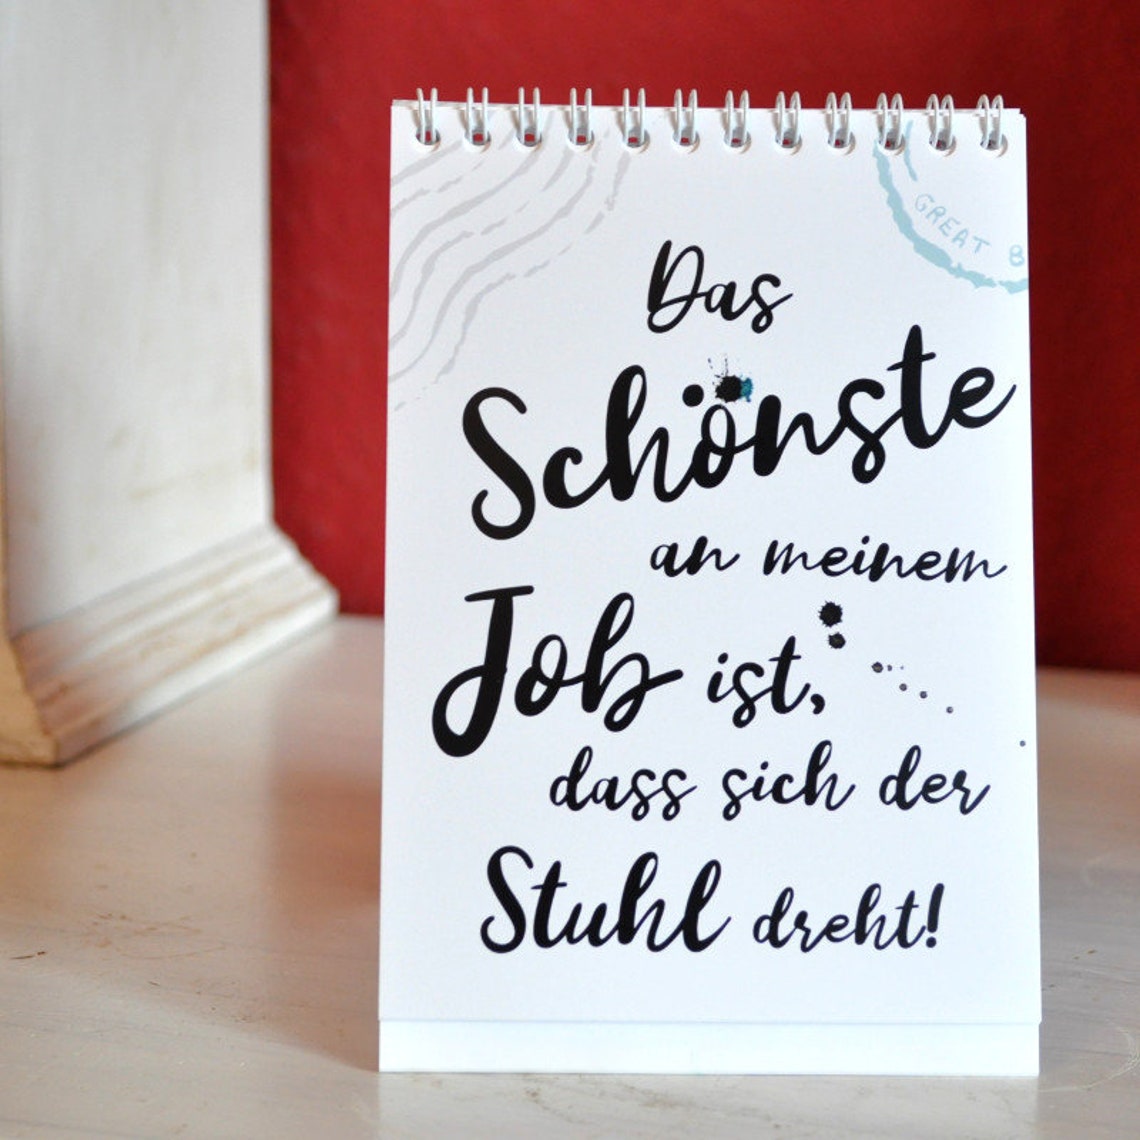 GREAT B
Das
Schönste
an meinem
Job ist,
dass sich der
Stuhl dreht!